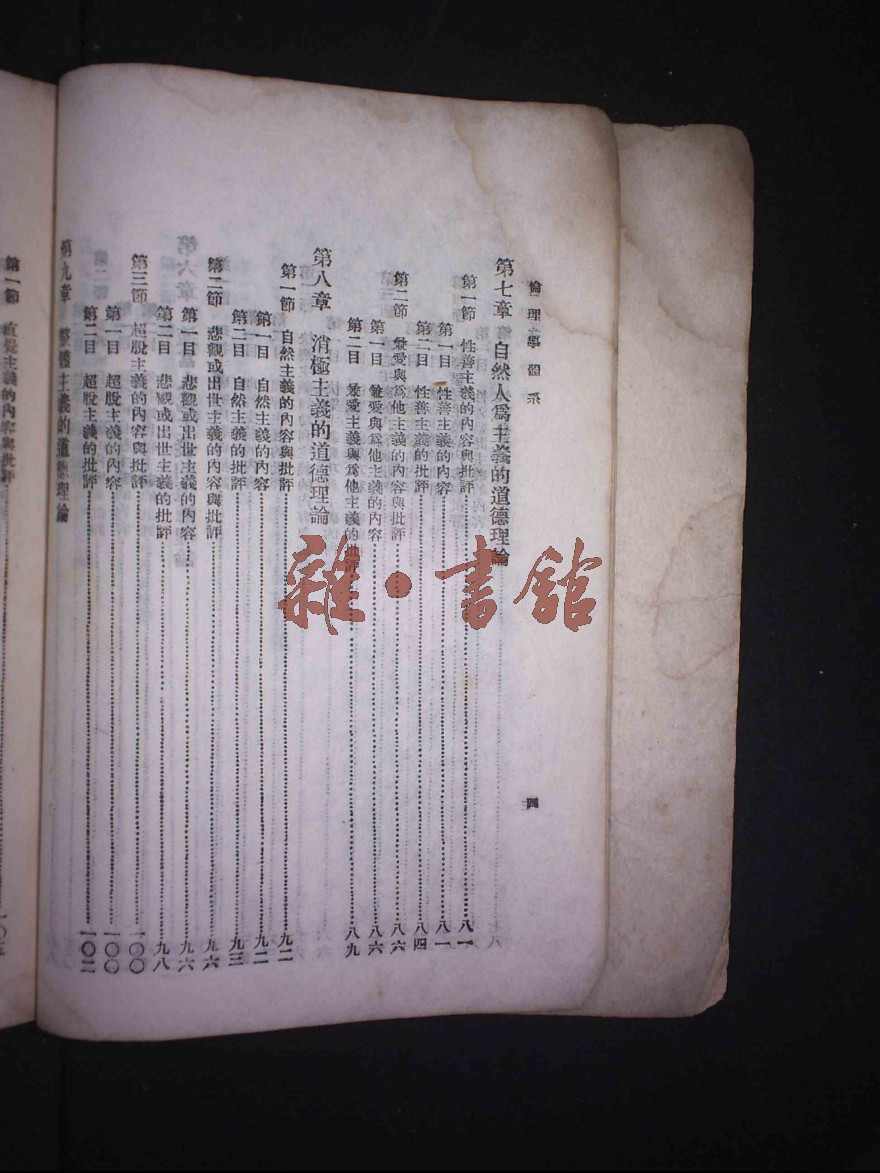 倫理學體系
四
第七章 自然人爲主義的道德理論
第一節 性善主義的內容與批評……八一
第一目 性善主義的內容……八一
第二目 性善主義的批評……八四
第二節 兼愛與爲他主義的內容與批評……八六
第一目 兼愛與爲他主義的內容……八六
第二目 兼愛主義與爲他主義的批評……八九
第八章 消極主義的道德理論
第一節 自然主義的內容與批評……九二
第一目 自然主義的內容……九二
第二目 自然主義的批評……九三
第二節 悲觀或出世主義的內容與批評……九六
第一目 悲觀或出世主義的內容……九六
第二目 悲觀或出世主義的批評……九八
第三節 超脫主義的內容與批評……一〇〇
第一目 超脫主義的內容……一〇〇
第二目 超脫主義的批評……一〇二
第九章 整體主義的道德理論
第一節 直覺主義的內容與批評……一〇五
雜·書館